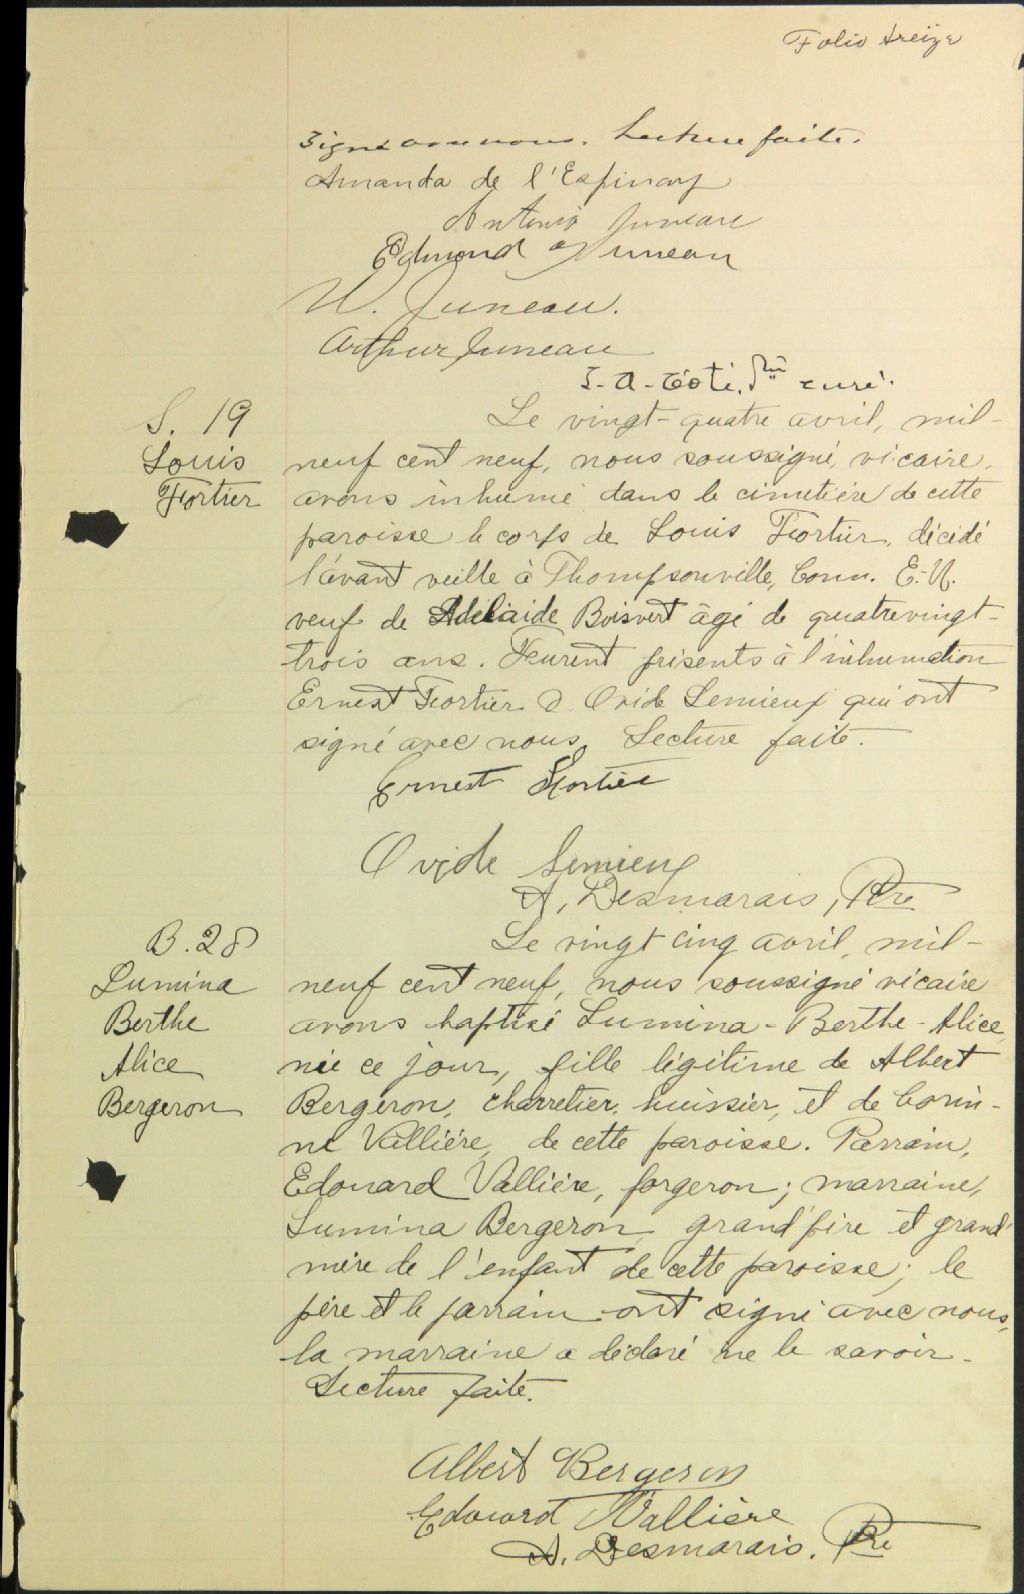 Folio treize
Signé avec nous. Lecture faite.
Amanda de l'Espinay
Antonio Juneau
Edmond Juneau
W. Juneau.
Arthur Juneau
J-A-Côté, Ptre curé.
S. 19
Louis
Fortier
Le vingt-quatre avril, mil-
neuf cent neuf, nous soussigné, vicaire,
avons inhumé dans le cimetière de cette
paroisse le corps de Louis Fortier, décédé
l'avant veille à Thompsonville, Conn. E.-U.
veuf de Adélaide Boisvert âgé de quatrevingt-
trois ans. Furent présents à l'inhumation
Ernest Fortier & Ovide Lemieux qui ont
signé avec nous. Lecture faite.
Ernest Fortier
Ovide Lemieux
A. Desmarais, Ptre
B. 28
Lumina
Berthe
Alice
Bergeron
Le vingt cinq avril, mil-
neuf cent neuf, nous soussigné vicaire
avons baptisé Lumina-Berthe-Alice,
née ce jour, fille légitime de Albert
Bergeron, charretier, huissier, et de Corin-
ne Vallière, de cette paroisse. Parrain,
Edouard Vallière, forgeron; marraine,
Lumina Bergeron, grand'père et grand'
mère de l'enfant de cette paroisse; le
père et le parrain ont signé avec nous,
la marraine a déclaré ne le savoir.
Lecture faite.
Albert Bergeron
Edouard Vallière
A. Desmarais. Ptre